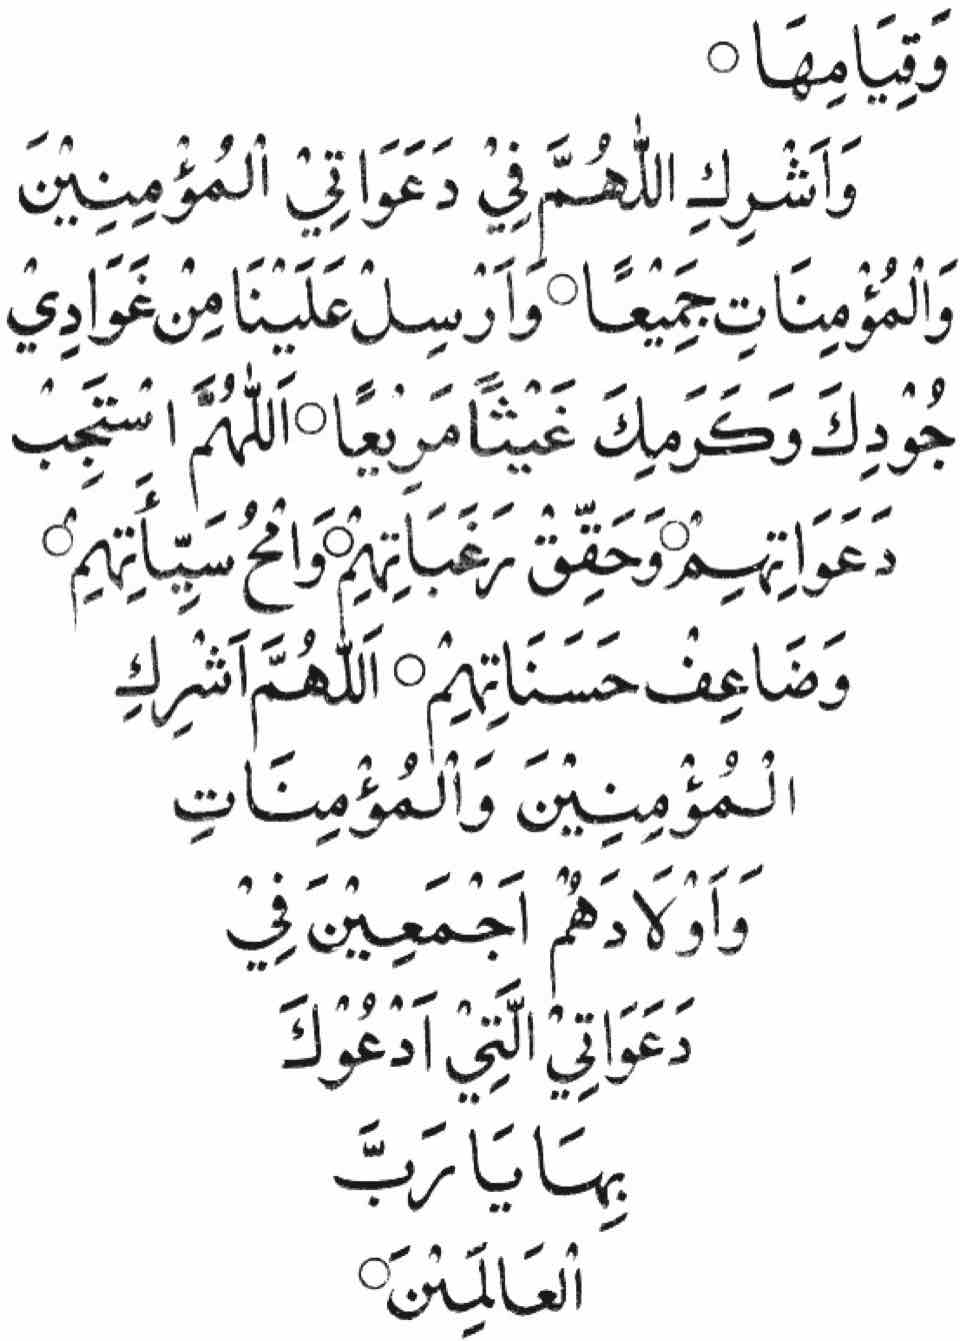 وَقِيَامِهَا ○
وَاَشْرِكِ اللّٰهُمَّ فِيْ دَعَوَاتِيْ الْمُؤْمِنِيْنَ
وَالْمُؤْمِنَاتِ جَمِيْعًا ○ وَاَرْسِلْ عَلَيْنَا مِنْ غَوَادِيْ
جُوْدِكَ وَكَرَمِكَ غَيْثًا مَرِيْعًا ○ اَللّٰهُمَّ اسْتَجِبْ
دَعَوَاتِهِمْ ○ وَحَقِّقْ رَغَبَاتِهِمْ ○ وَامْحُ سَيِّأَتِهِمْ ○
وَضَاعِفْ حَسَنَاتِهِمْ ○ اَللّٰهُمَّ اَشْرِكِ
الْمُؤْمِنِيْنَ وَالْمُؤْمِنَاتِ
وَاَوْلَادَهُمْ اَجْمَعِيْنَ فِيْ
دَعَوَاتِيْ الَّتِيْ اَدْعُوْكَ
بِهَا يَا رَبَّ
الْعَالَمِيْنَ ○